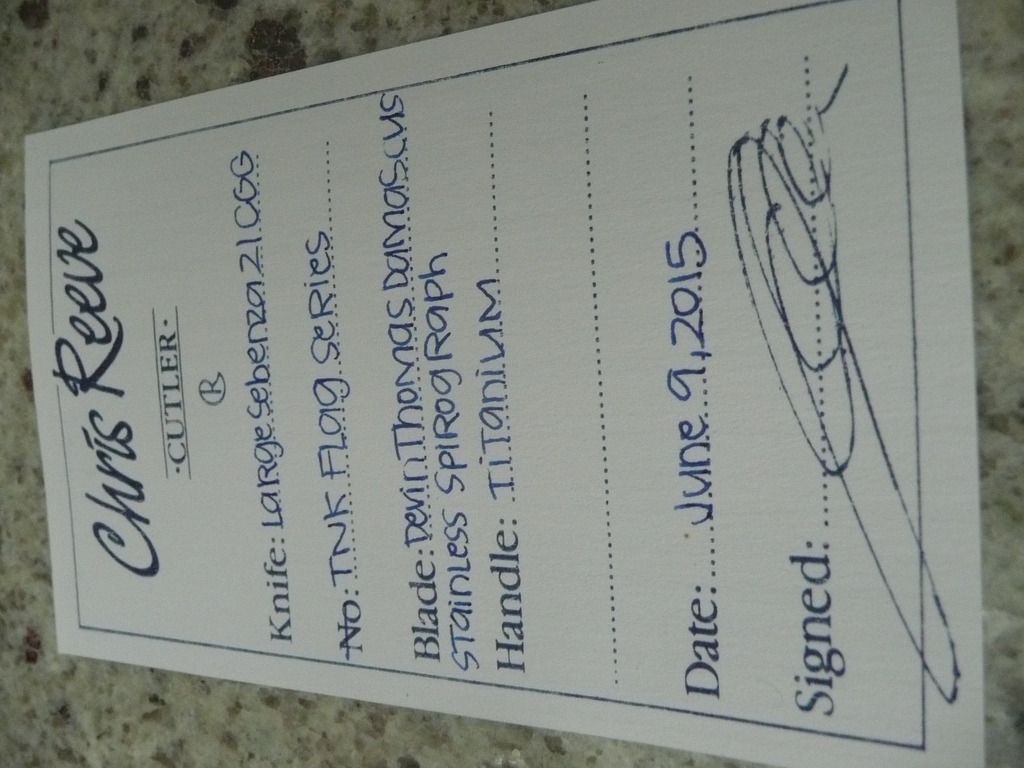 Chris Reeve
·CUTLER·
®
Knife: Large Sebenza 21 CGG
No: TNK Flag Series
Blade: Devin Thomas Damascus
Stainless Spirograph
Handle: Titanium
Date: June 9, 2015
Signed: